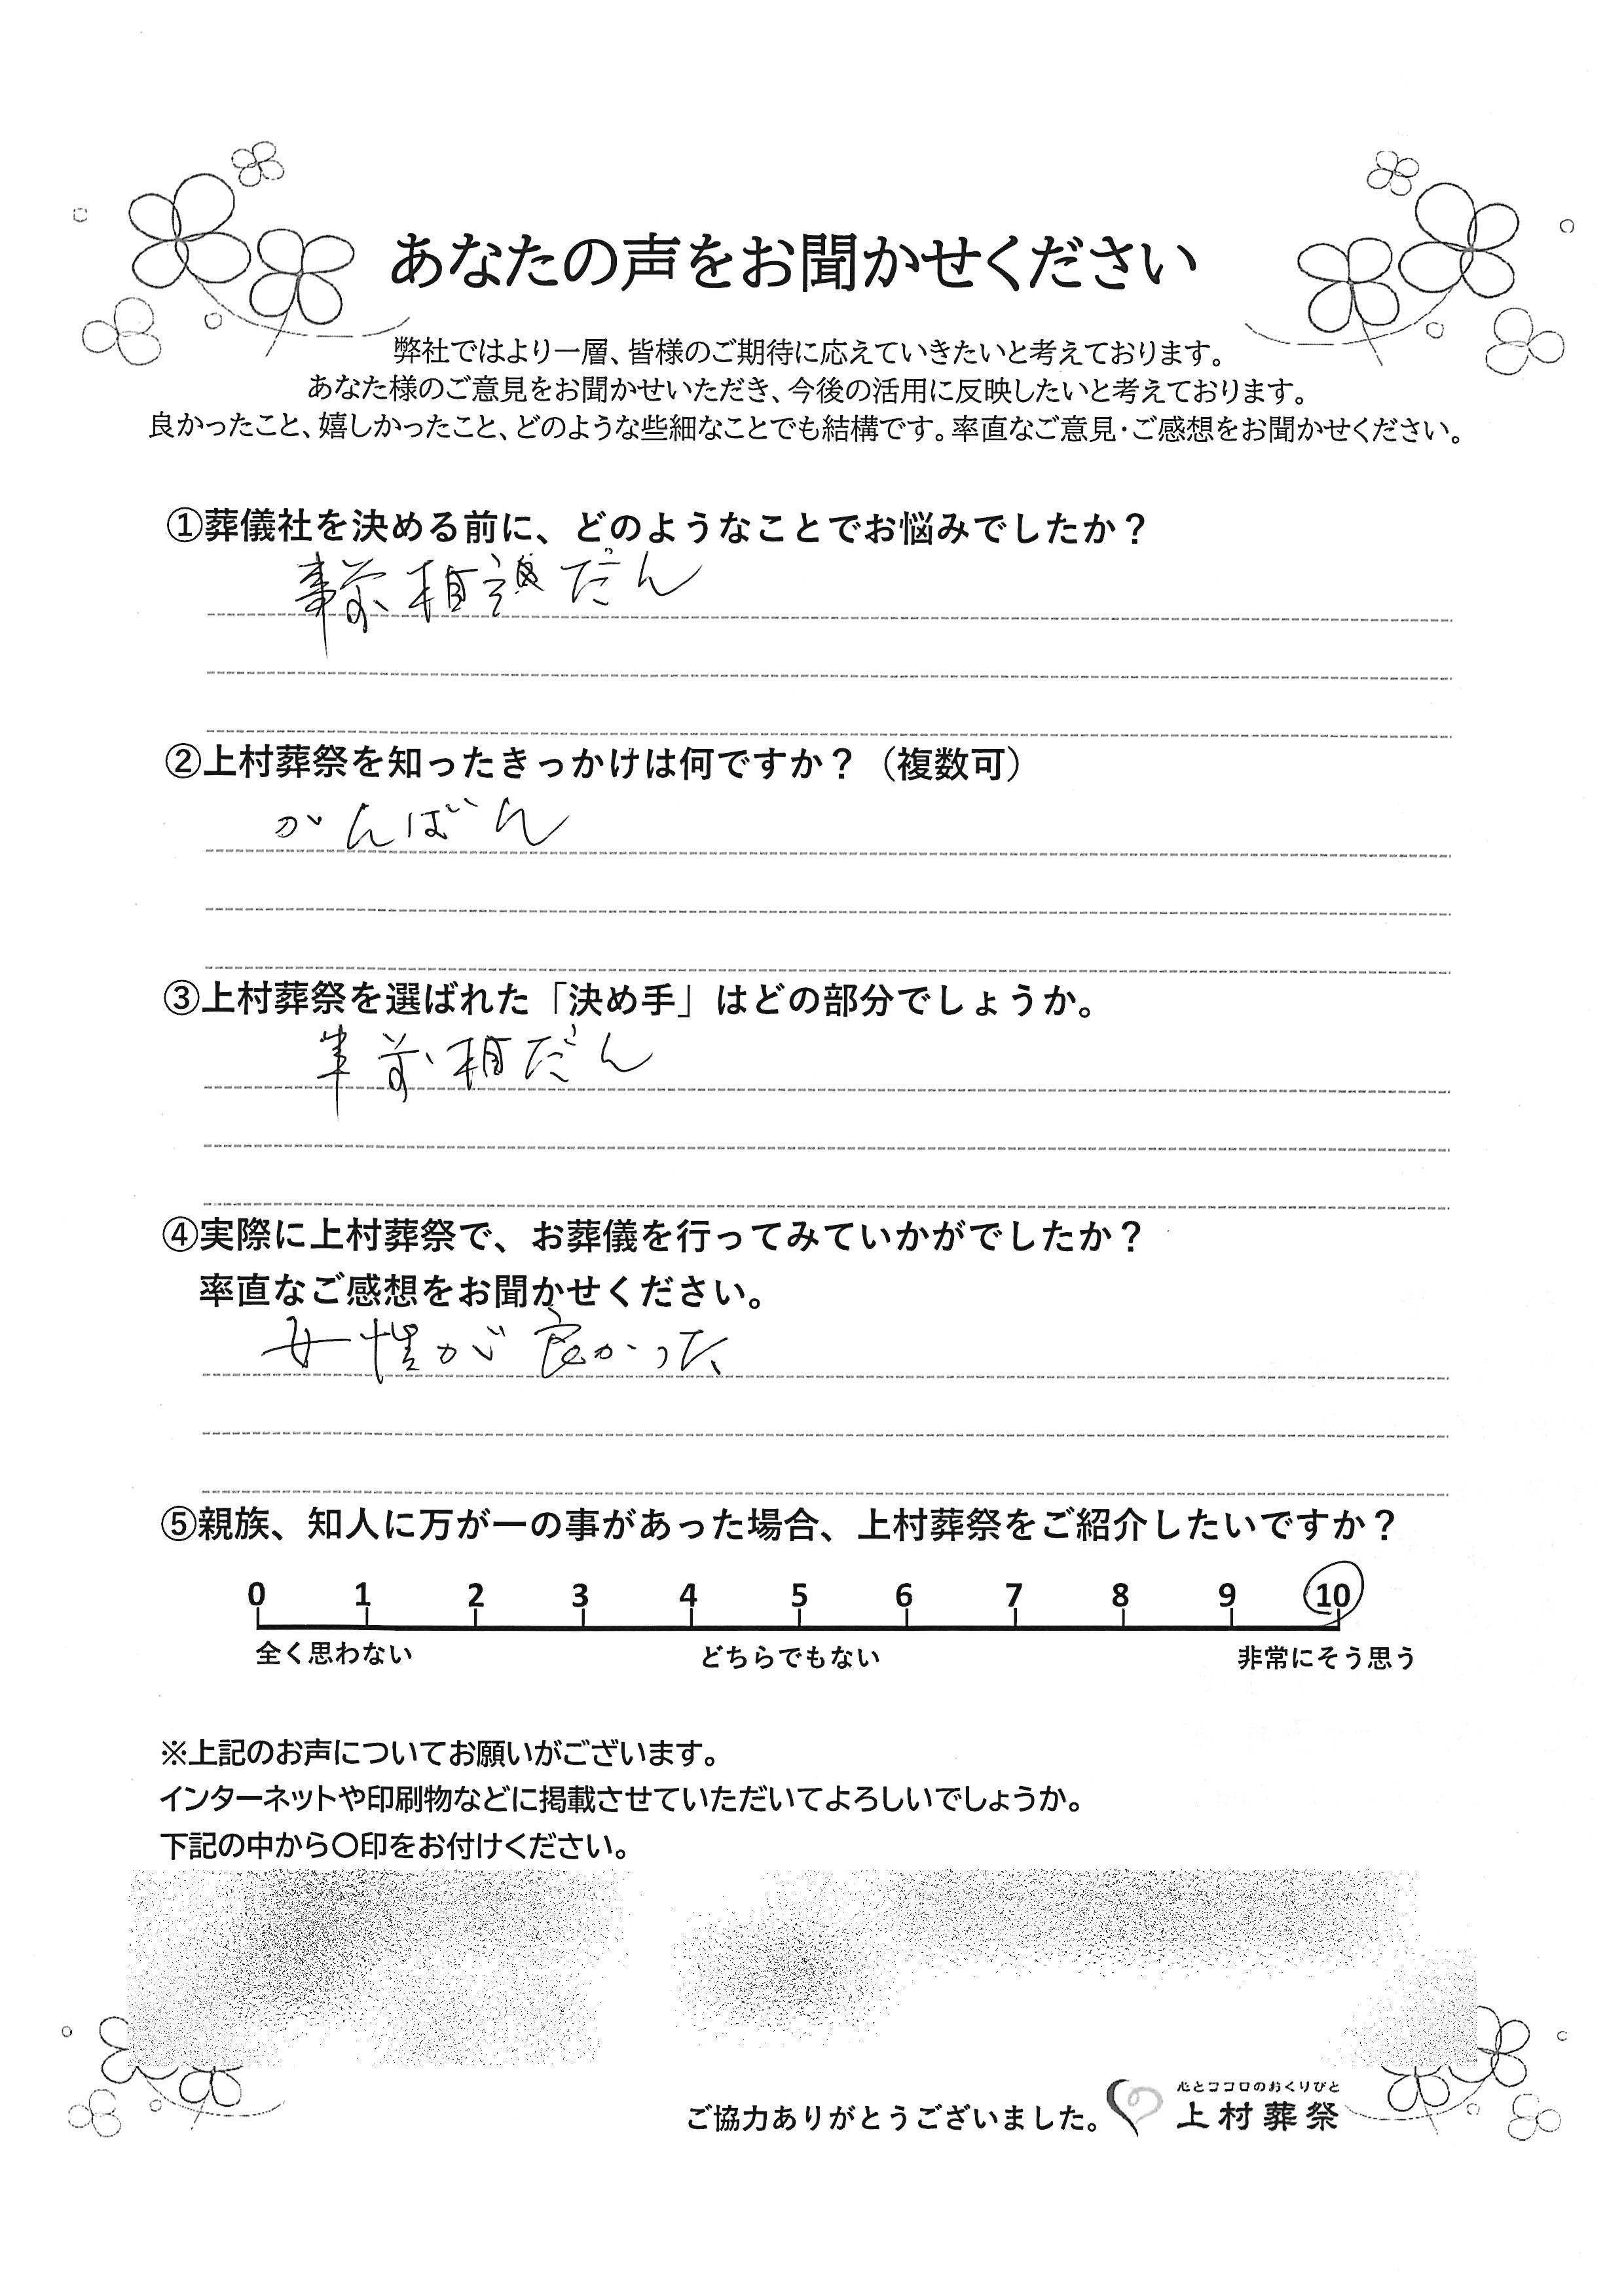 あなたの声をお聞かせください
弊社ではより一層、皆様のご期待に応えていきたいと考えております。
あなた様のご意見をお聞かせいただき、今後の活用に反映したいと考えております。
良かったこと、嬉しかったこと、どのような些細なことでも結構です。率直なご意見・ご感想をお聞かせください。
①葬儀社を決める前に、どのようなことでお悩みでしたか？
事前相だん
②上村葬祭を知ったきっかけは何ですか？（複数可）
かんばん
③上村葬祭を選ばれた「決め手」はどの部分でしょうか。
事前相だん
④実際に上村葬祭で、お葬儀を行ってみていかがでしたか？
率直なご感想をお聞かせください。
女性が良かった
⑤親族、知人に万が一の事があった場合、上村葬祭をご紹介したいですか？
0 1 2 3 4 5 6 7 8 9 10
全く思わない どちらでもない 非常にそう思う
※上記のお声についてお願いがございます。
インターネットや印刷物などに掲載させていただいてよろしいでしょうか。
下記の中から〇印をお付けください。
ご協力ありがとうございました。
心とココロのおくりびと
上村葬祭